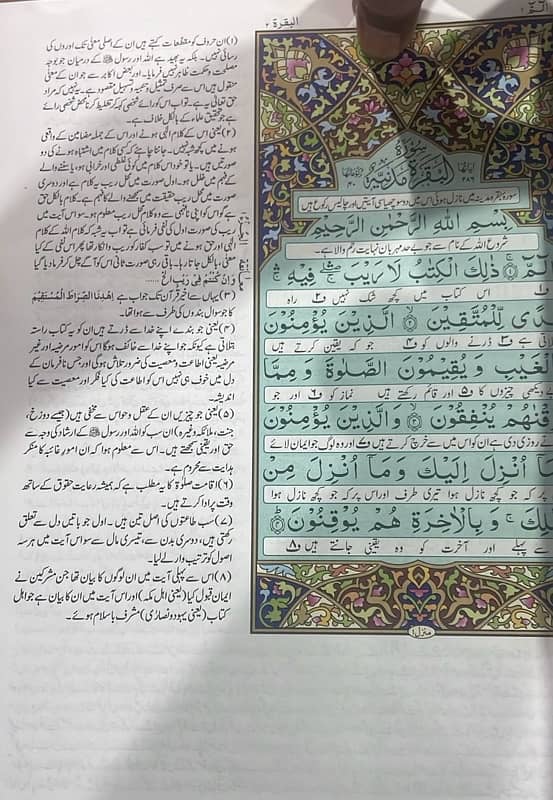 البقرة ٢
الٓمّٓ ١
سُوْرَةُ
الْبَقَرَةِ مَدَنِيَّةٌ
سورۂ بقرہ مدینہ میں نازل ہوئی اس میں دو سو چھیاسی آیتیں اور چالیس رکوع ہیں
بِسْمِ اللّٰهِ الرَّحْمٰنِ الرَّحِيْمِ
شروع اللہ کے نام سے جو بے حد مہربان نہایت رحم والا ہے۔
الٓمّٓ ۚ ذٰلِكَ الْكِتٰبُ لَا رَيْبَ فِيْهِ
اس کتاب میں کچھ شک نہیں ف۲ راہ
دًى لِّلْمُتَّقِيْنَ ۙ الَّذِيْنَ يُؤْمِنُوْنَ
ڈرنے والوں کو ف۴ جو کہ یقین کرتے ہیں
لْغَيْبِ وَ يُقِيْمُوْنَ الصَّلٰوةَ وَ مِمَّا
دیکھی چیزوں کا ف۵ اور قائم رکھتے ہیں نماز کو ف۶ اور جو
قْنٰهُمْ يُنْفِقُوْنَ ۙ وَ الَّذِيْنَ يُؤْمِنُوْنَ
نے روزی دی ہے ان کو اس میں سے خرچ کرتے ہیں ف۷ اور وہ لوگ جو ایمان لائے
مَآ اُنْزِلَ اِلَيْكَ وَ مَآ اُنْزِلَ مِنْ
پر کہ جو کچھ نازل ہوا تیری طرف اور اس پر کہ جو کچھ نازل ہوا
لِكَ ۚ وَ بِالْاٰخِرَةِ هُمْ يُوْقِنُوْنَ
سے پہلے اور آخرت کو وہ یقینی جانتے ہیں ف۸
منزل ۱
(۱) ان حروف کو مقطعات کہتے ہیں ان کے اصلی معنی تک اوروں کی
رسائی نہیں۔ بلکہ یہ بھید ہے اللہ اور رسول ﷺ کے درمیان جو بوجہ
مصلحت و حکمت ظاہر نہیں فرمایا۔ اور بعض اکابر سے جو ان کے معنی
منقول ہیں اس سے صرف تمثیل و تنبیہ و تسہیل مقصود ہے۔ یہ نہیں کہ مراد
حق تعالیٰ یہ ہے۔ تو اب اس کو رائے شخصی کہہ کر تغلیط کرنا محض شخصی رائے
ہے جو تحقیق علماء کے بالکل خلاف ہے۔
(۲) یعنی اس کے کلام الٰہی ہونے اور اس کے جملہ مضامین کے واقعی
ہونے میں کچھ شبہ نہیں۔ جاننا چاہئے کہ کسی کلام میں اشتباہ ہونے کی دو
صورتیں ہیں۔ یا تو خود اس کلام میں کوئی غلطی اور خرابی ہو یا سننے والے
کے فہم میں خلل ہو۔ اول صورت میں محل ریب یہ کلام ہے اور دوسری
صورت میں محل ریب حقیقت میں سمجھنے والے کا فہم ہے۔ کلام بالکل حق
ہے گو اس کو اپنی نافہمی سے وہ کلام محل ریب معلوم ہو۔ سو اس آیت میں
ریب کی صورت اول کی نفی فرمائی ہے تو اب یہ شبہ کہ کلام اللہ کے کلام
الٰہی اور حق ہونے میں تو سب کفار کو ریب و انکار تھا پھر اس نفی کے کیا
معنی، بالکل جاتا رہا۔ باقی رہی صورت ثانی اس کو آگے چل کر فرما دیا گیا
وَ اِنْ كُنْتُمْ فِيْ رَيْبٍ الخ ……
(۳) یہاں سے اخیر قرآن تک جواب ہے اِهْدِنَا الصِّرَاطَ الْمُسْتَقِيْمَ
کا جو سوال بندوں کی طرف سے ہوا تھا۔
(۴) یعنی جو بندے اپنے خدا سے ڈرتے ہیں ان کو یہ کتاب راستہ
بتلاتی ہے کیونکہ جو اپنے خدا سے خائف ہوگا اس کو امور مرضیہ اور غیر
مرضیہ یعنی اطاعت و معصیت کی ضرور تلاش ہوگی اور جس نافرمان کے
دل میں خوف ہی نہیں اس کو اطاعت کی کیا فکر اور معصیت سے کیا
اندیشہ۔
(۵) یعنی جو چیزیں ان کے عقل و حواس سے مخفی ہیں (جیسے دوزخ،
جنت، ملائکہ وغیرہ) ان سب کو اللہ اور رسول ﷺ کے ارشاد کی وجہ سے
حق اور یقینی سمجھتے ہیں۔ اس سے معلوم ہوا کہ ان امور غائبہ کا منکر
ہدایت سے محروم ہے۔
(۶) اقامت صلوٰۃ کا یہ مطلب ہے کہ ہمیشہ رعایت حقوق کے ساتھ
وقت پر ادا کرتے ہیں۔
(۷) سب طاعتوں کی اصل تین ہیں۔ اول جو باتیں دل سے تعلق
رکھتی ہیں، دوسری بدن سے، تیسری مال سے سو اس آیت میں ہر سہ
اصول کو ترتیب وار لے لیا۔
(۸) اس سے پہلی آیت میں ان لوگوں کا بیان تھا جن مشرکین نے
ایمان قبول کیا (یعنی اہل مکہ) اور اس آیت میں ان کا بیان ہے جو اہل
کتاب (یعنی یہود و نصاریٰ) مشرف باسلام ہوئے۔